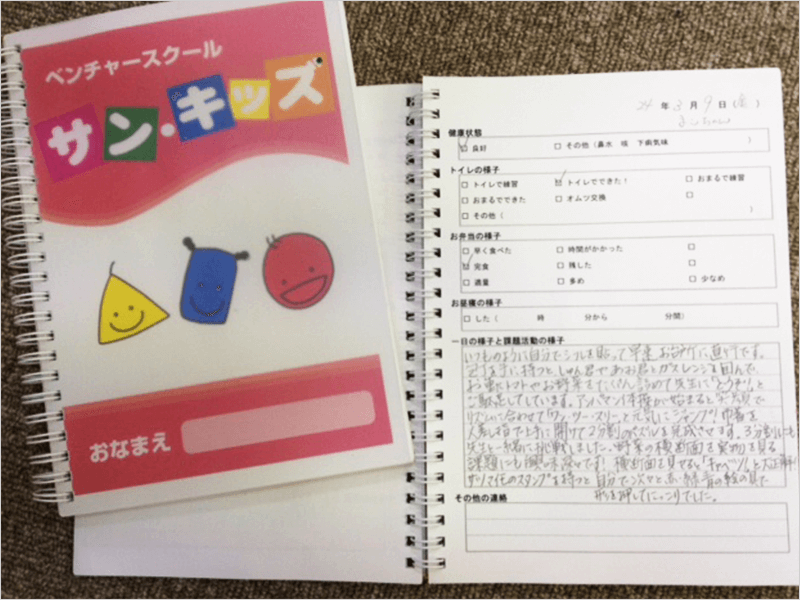 ベンチャースクール
サン・キッズ
おなまえ
24 年 3 月 9 日 (金)
健康状態
☑ 良好 □ その他（鼻水 咳 下痢気味 ）
トイレの様子
□ トイレで練習 ☑ トイレでできた！ □ おまるで練習
□ おまるでできた □ オムツ交換 □
□ その他（ ）
お弁当の様子
□ 早く食べた □ 時間がかかった □
☑ 完食 □ 残した □
□ 適量 □ 多め □ 少なめ
お昼寝の様子
□ した（ 時 分から 分間）
一日の様子と課題活動の様子
いつものように自分でシールを貼って早速お部屋に直行です。
包丁を手に持つと、しゅん君やあお君とガスレンジを囲んで、
お皿にトマトやお野菜をたくさん詰めて先生に「どうぞ!」と
ご馳走してています。アンパンマン体操が始まると笑顔で
リズムに合わせて「ワン・ツー・スリー」と元気にジャンプ! 巾着を
人差し指で上手に開けて2分割のパズルを完成させます。3分割にも
先生と一緒に挑戦しました。野菜の横断面と実物を見る
課題にも興味深々です! 横断面を見せると「キャベツ!」と大正解!
のスタンプを持つと自分で次々と赤・緑・青の絵の具で
形を押してにっこりでした。
その他の連絡